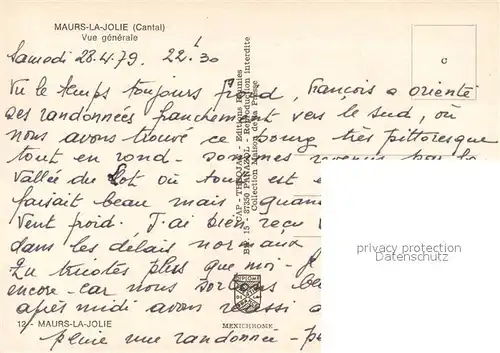 MAURS-LA-JOLIE (Cantal)
Vue générale
Samedi 28.4.79. 22.30
Vu le temps toujours froid, François a orienté
ses randonnées franchement vers le sud, où
nous avons trouvé ce bourg très pittoresque
tout en rond - sommes revenus par la
Vallée du Lot où tout est
faisait beau mais quand
Vent froid. J'ai bien reçu
dans les délais normaux
Tu tricotes plus que moi - je
encore - car nous sortons
après midi avons réussi
pleine une randonnée -
12 - MAURS-LA-JOLIE
MEXICHROME
CAP - THEOJAC - Editions Réunies
BP 15 - 87350 PANAZOL - Reproduction interdite
Collection Maison de la Presse
privacy protection
Datenschutz